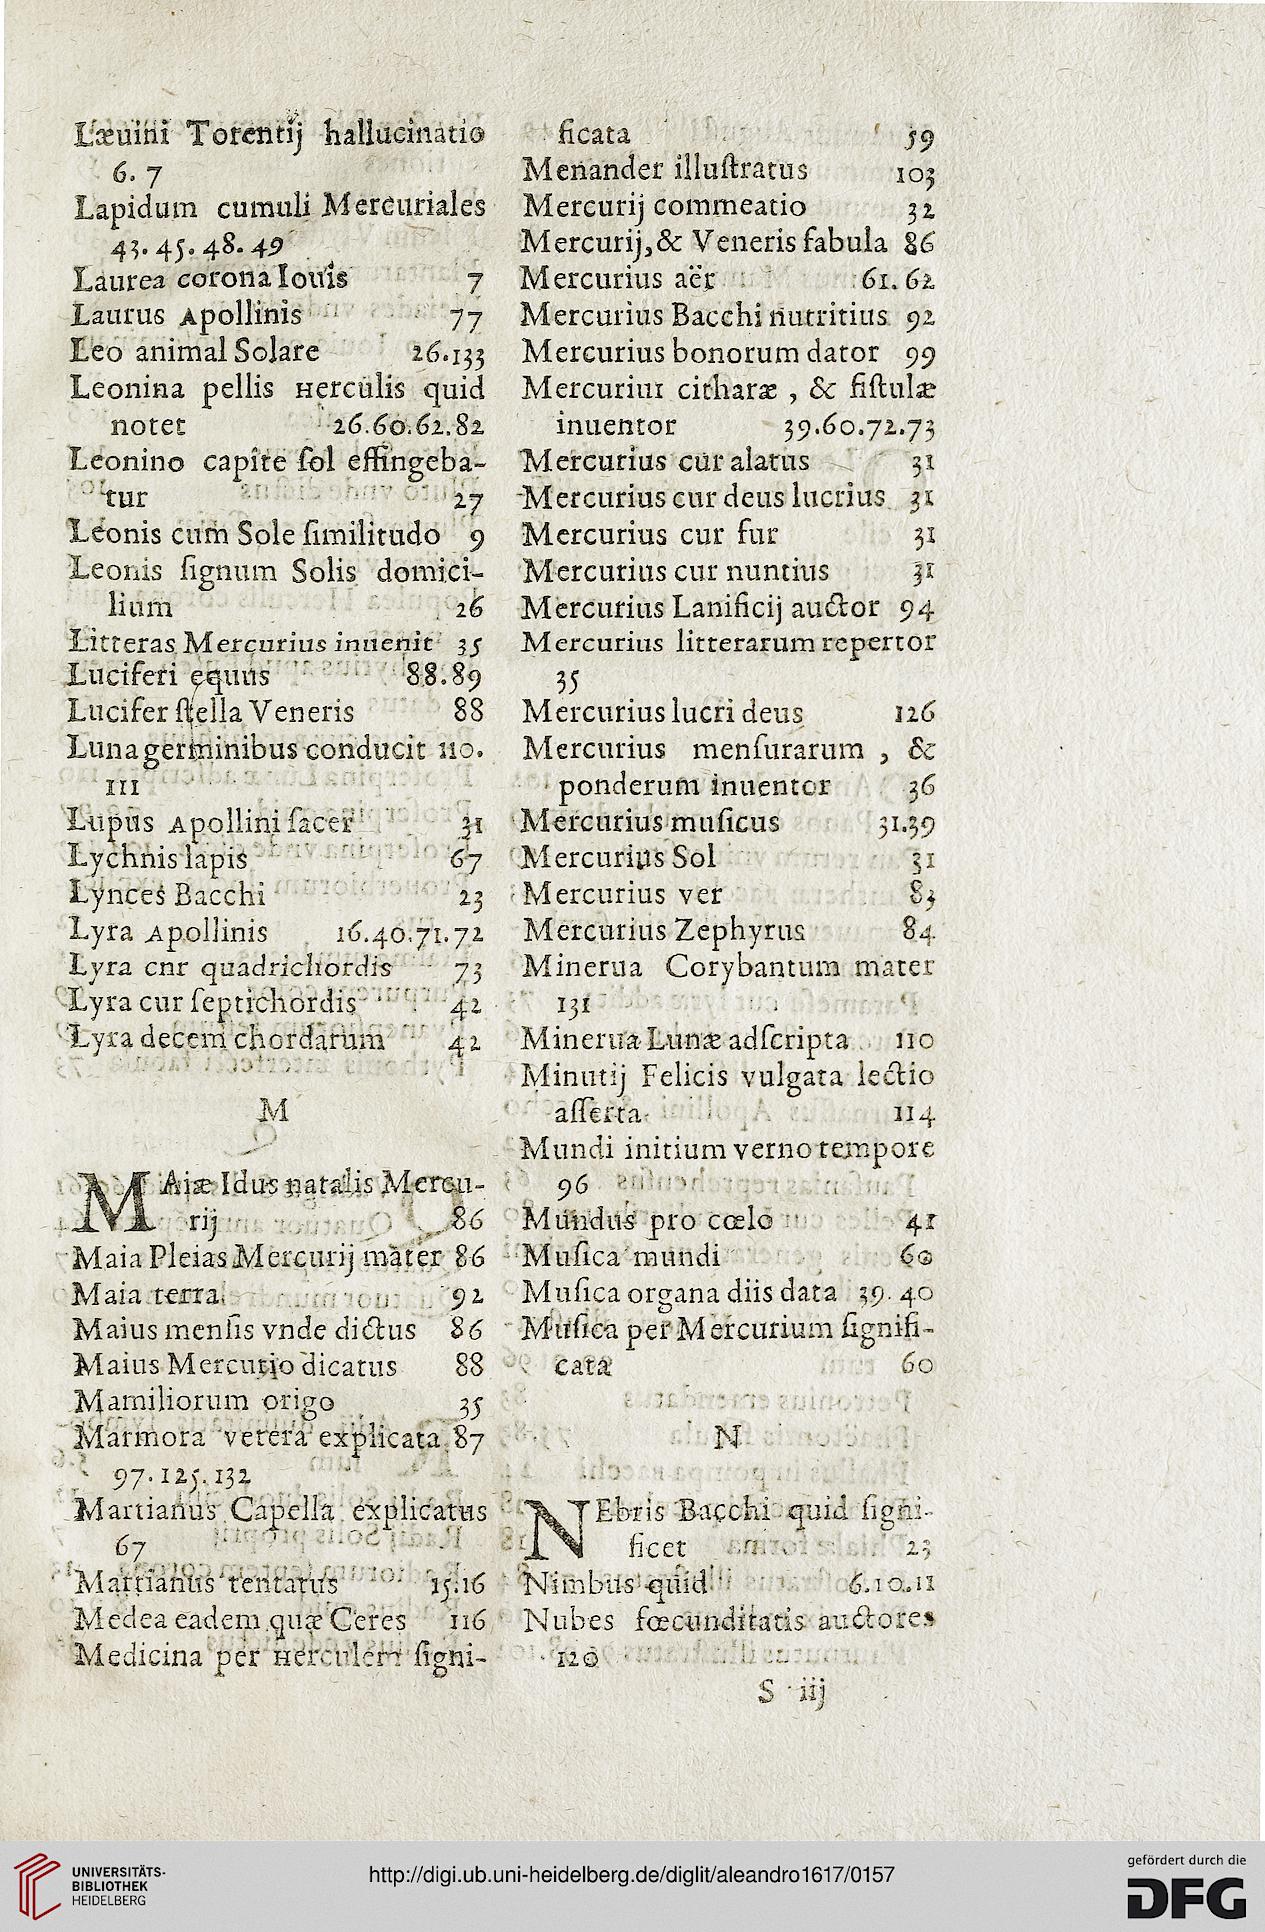 Læuini Torentij hallucinatio
6. 7
Lapidum cumuli Mercuriales
43. 45. 48. 49
Laurea corona Iouis 7
Laurus Apollinis 77
Leo animal Solare 26.133
Leonina pellis Herculis quid
notet 26.60.62.82
Leonino capite ſol effingeba-
tur 27
Leonis cum Sole ſimilitudo 9
Leonis ſignum Solis domici-
lium 26
Litteras Mercurius inuenit 35
Luciferi equus 88.89
Lucifer ſtella Veneris 88
Luna germinibus conducit 110.
111
Lupus Apollini ſacer 31
Lychnis lapis 67
Lynces Bacchi 23
Lyra Apollinis 16.40.71.72
Lyra cnr quadrichordis 73
Lyra cur ſeptichordis 42
Lyra decem chordarum 42
M
MAiæ Idus natalis Mercu-
rij 86
Maia Pleias Mercurij mater 86
Maia terra 92
Maius menſis vnde dictus 86
Maius Mercurio dicatus 88
Mamiliorum origo 35
Marmora vetera explicata 87
97. 125. 132
Martianus Capella explicatus
67
Martianus tentatus 15.16
Medea eadem quæ Ceres 116
Medicina per Herculem ſigni-
ficata 59
Menander illuſtratus 103
Mercurij commeatio 32
Mercurij, & Veneris fabula 86
Mercurius aër 61. 62
Mercurius Bacchi nutritius 92
Mercurius bonorum dator 99
Mercuriuı citharæ , & fiſtulæ
inuentor 39.60.72.73
Mercurius cur alatus 31
Mercurius cur deus lucrius 31
Mercurius cur fur 31
Mercurius cur nuntius 31
Mercurius Lanificij auctor 94
Mercurius litterarum repertor
35
Mercurius lucri deus 126
Mercurius menſurarum , &
ponderum inuentor 36
Mercurius muſicus 31.39
Mercurius Sol 31
Mercurius ver 83
Mercurius Zephyrus 84
Minerua Corybantum mater
131
Minerua Lunæ adſcripta 110
Minutij Felicis vulgata lectio
aſſerta 114
Mundi initium verno tempore
96
Mundus pro cœlo 41
Muſica mundi 60
Muſica organa diis data 39. 40
Muſica per Mercurium ſignifi-
cata 60
N
NEbris Bacchi quid ſigni-
ficet 23
Nimbus quid 6.10.11
Nubes fœcunditatis auctores
120
S iij
UNIVERSITÄTS-
BIBLIOTHEK
HEIDELBERG
http://digi.ub.uni-heidelberg.de/diglit/aleandro1617/0157
gefördert durch die
DFG